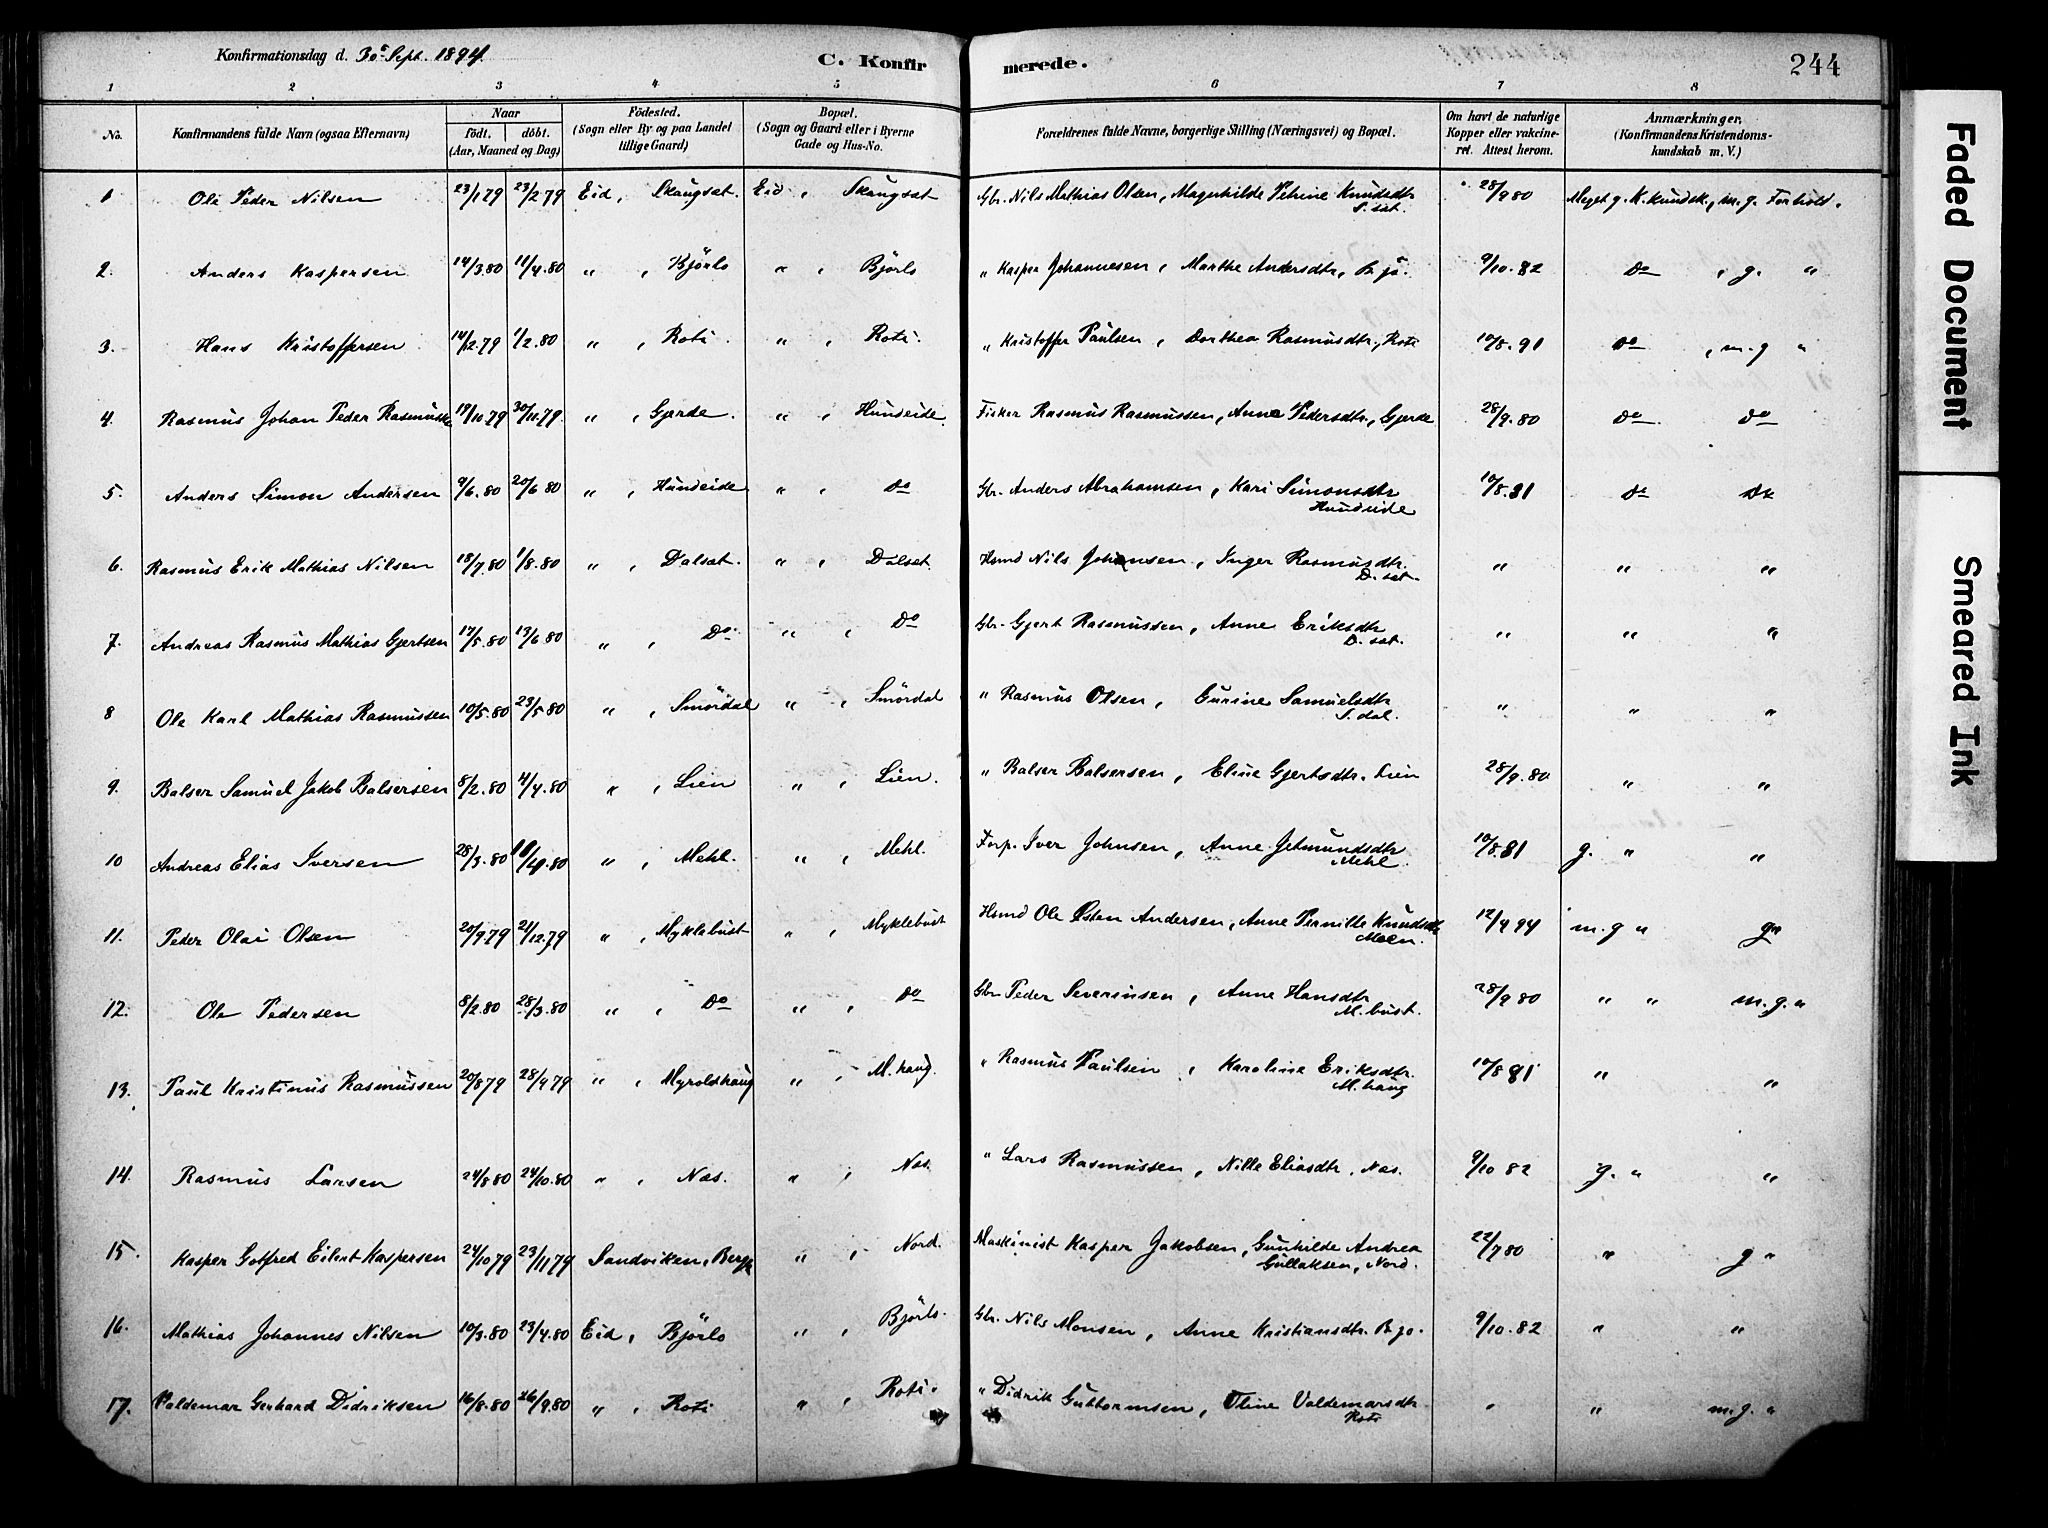 Konfirmationsdag d. 30. Sept. 1894.
C. Konfirmerede.
244
1 2 3 4 5 6 7 8
No. Konfirmandens fulde Navn (ogsaa Efternavn) Naar födt. döbt. (Aar, Maaned og Dag) Födested. (Sogn eller By og paa Landet tillige Gaard) Bopæl. (Sogn og Gaard eller i Byerne Gade og Hus-No. Forældrenes fulde Navne, borgerlige Stilling (Næringsvei) og Bopæl. Om havt de naturlige Kopper eller vakcineret. Attest herom. Anmærkninger, (Konfirmandens Kristendomskundskab m. V.)
1 Ole Peder Nilsen 23/1 79 23/2 79 Eid, Skaugsæt. Eid, Skaugsæt Gbr. Nils Mathias Olsen, Magnhilde Petrine Knudsdtr S.sæt. 28/9 80 Meget g. K.kundsk., m.g. Forhold.
2. Anders Kaspersen 14/3.80 11/4.80 " , Björlo " , Björlo " Kasper Johannesen, Marthe Andersdtr, Bjö. 9/10.82 Do , g. "
3. Hans Kristoffersen 14/12.79 1/2.80 " , Roti. " , Roti. " Kristoffer Paulsen, Dorthea Rasmusdtr., Roti 10/8.91 Do , m.g "
4. Rasmus Johan Peder Rasmussen 19/10.79 30/11.79. " , Gjerde. " , Hundeide. Fisker Rasmus Rasmussen, Anne Pedersdtr, Gjerde 28/9.80 Do Do
5. Anders Simon Andersen 9/6.80 20/6 80 " , Hundeide " , Do Gbr. Anders Abrahamsen, Kari Simonsdtr Hundeide 10/8.81 Do Do
6. Rasmus Erik Mathias Nilsen 18/7.80 1/8.80 " , Dalsæt. " , Dalsæt. Hsmd Nils Johansen, Inger Rasmusdtr. D.sæt. " " "
7. Andreas Rasmus Mathias Gjertsen 17/5.80 13/6.80 " , Do " , Do Gbr. Gjert Rasmussen, Anne Eriksdtr D.sæt. " " "
8 Ole Karl Mathias Rasmussen 10/5.80 23/5.80 " , Smördal " , Smördal " Rasmus Olsen, Gurine Samuelsdtr S.dal. " " "
9. Balser Samuel Jakob Balsersen 8/2.80 4/4.80 " , Lien " , Lien. " Balser Balsersen, Eline Gjertsdtr. Lien 28/9.80 " "
10 Andreas Elias Iversen 28/3.80 " , Mehl. " , Mehl. Forp. Iver Johnsen, Anne Jetmundsdtr Mehl 10/8.81 g. " "
11. Peder Olai Olsen 20/9.79 21/12.79 " , Myklebust " , Myklebust Hsmd Ole Østen Andersen, Anne Pernille Knudsdtr Moen. 12/4 94 m.g " g "
12. Ole Pedersen 8/2.80 28/3.80 " , Do " , Do Gbr Peder Severinsen, Anne Hansdtr M.bust. 28/9 80 " " m.g. "
13. Paul Kristinus Rasmussen 20/8 79 28/9 79 " , Myroldshaug " , M.haug. " Rasmus Paulsen, Karoline Eriksdtr. M.haug 10/8 81 " "
14. Rasmus Larsen 24/8.80 24/10.80 " , Næs. " , Næs. " Lars Rasmussen, Nille Eliasdtr, Næs. 9/10 82 g. " "
15. Kasper Gotfred Eilert Kaspersen 24/10 79 23/11 79 Sandviken, Berg. " , Nord. Maskinist Kasper Jakobsen, Gunhilde Andrea Gullaksen, Nord. 22/7 80 " g "
16. Mathias Johannes Nilsen 10/3.80 23/4.80 Eid, Björlo " , Björlo. Gbr. Nils Monsen, Anne Kristiansdtr. Bjo. 9/10.82 " "
17. Valdemar Gerhard Didriksen 16/8.80 26/9.80 " , Roti " , Roti. " Didrik Guttormsen, Oline Valdemarsdtr. Roti " " m.g. "
Faded Document
Smeared Ink